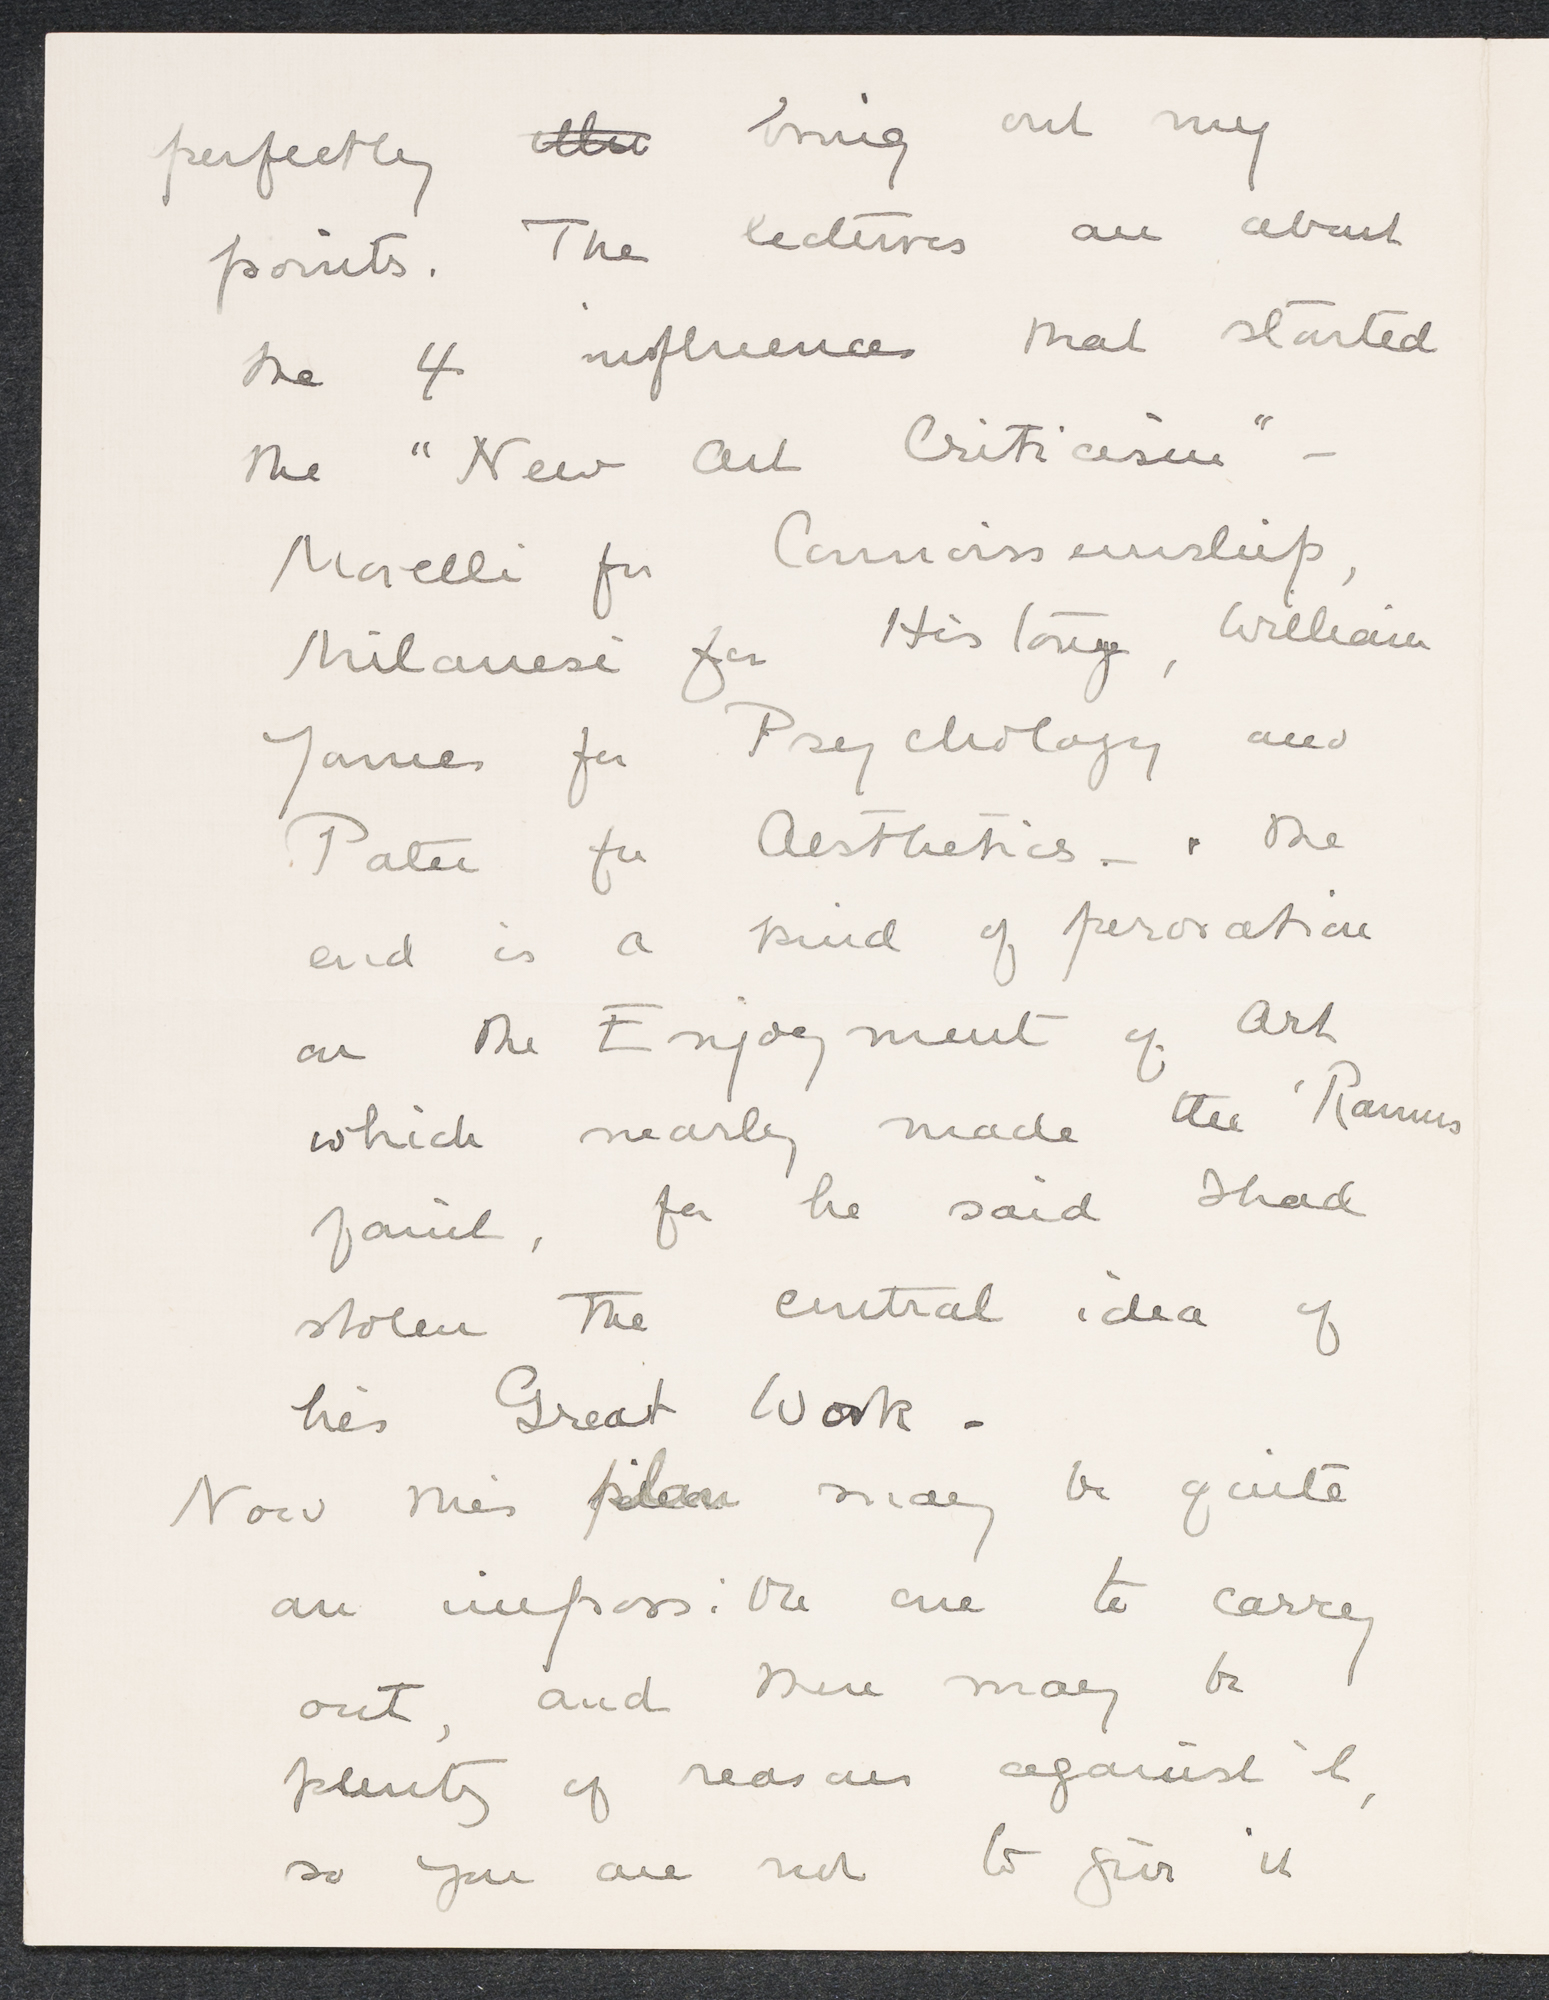 perfectly bring out my
points. The lectures are about
the 4 influences that started
the "New Art Criticism" -
Morelli for Connoisseurship,
Milanesi for History, William
James for Psychology and
Pater for Aesthetics - . The
end is a kind of peroration
on the Enjoyment of Art
which nearly made the
faint, for he said I had
stolen The central idea of
his Great Work -
Now this plan may be quite
an impossible one to carry
out, and there may be
plenty of reasons against it,
so you are not to give it